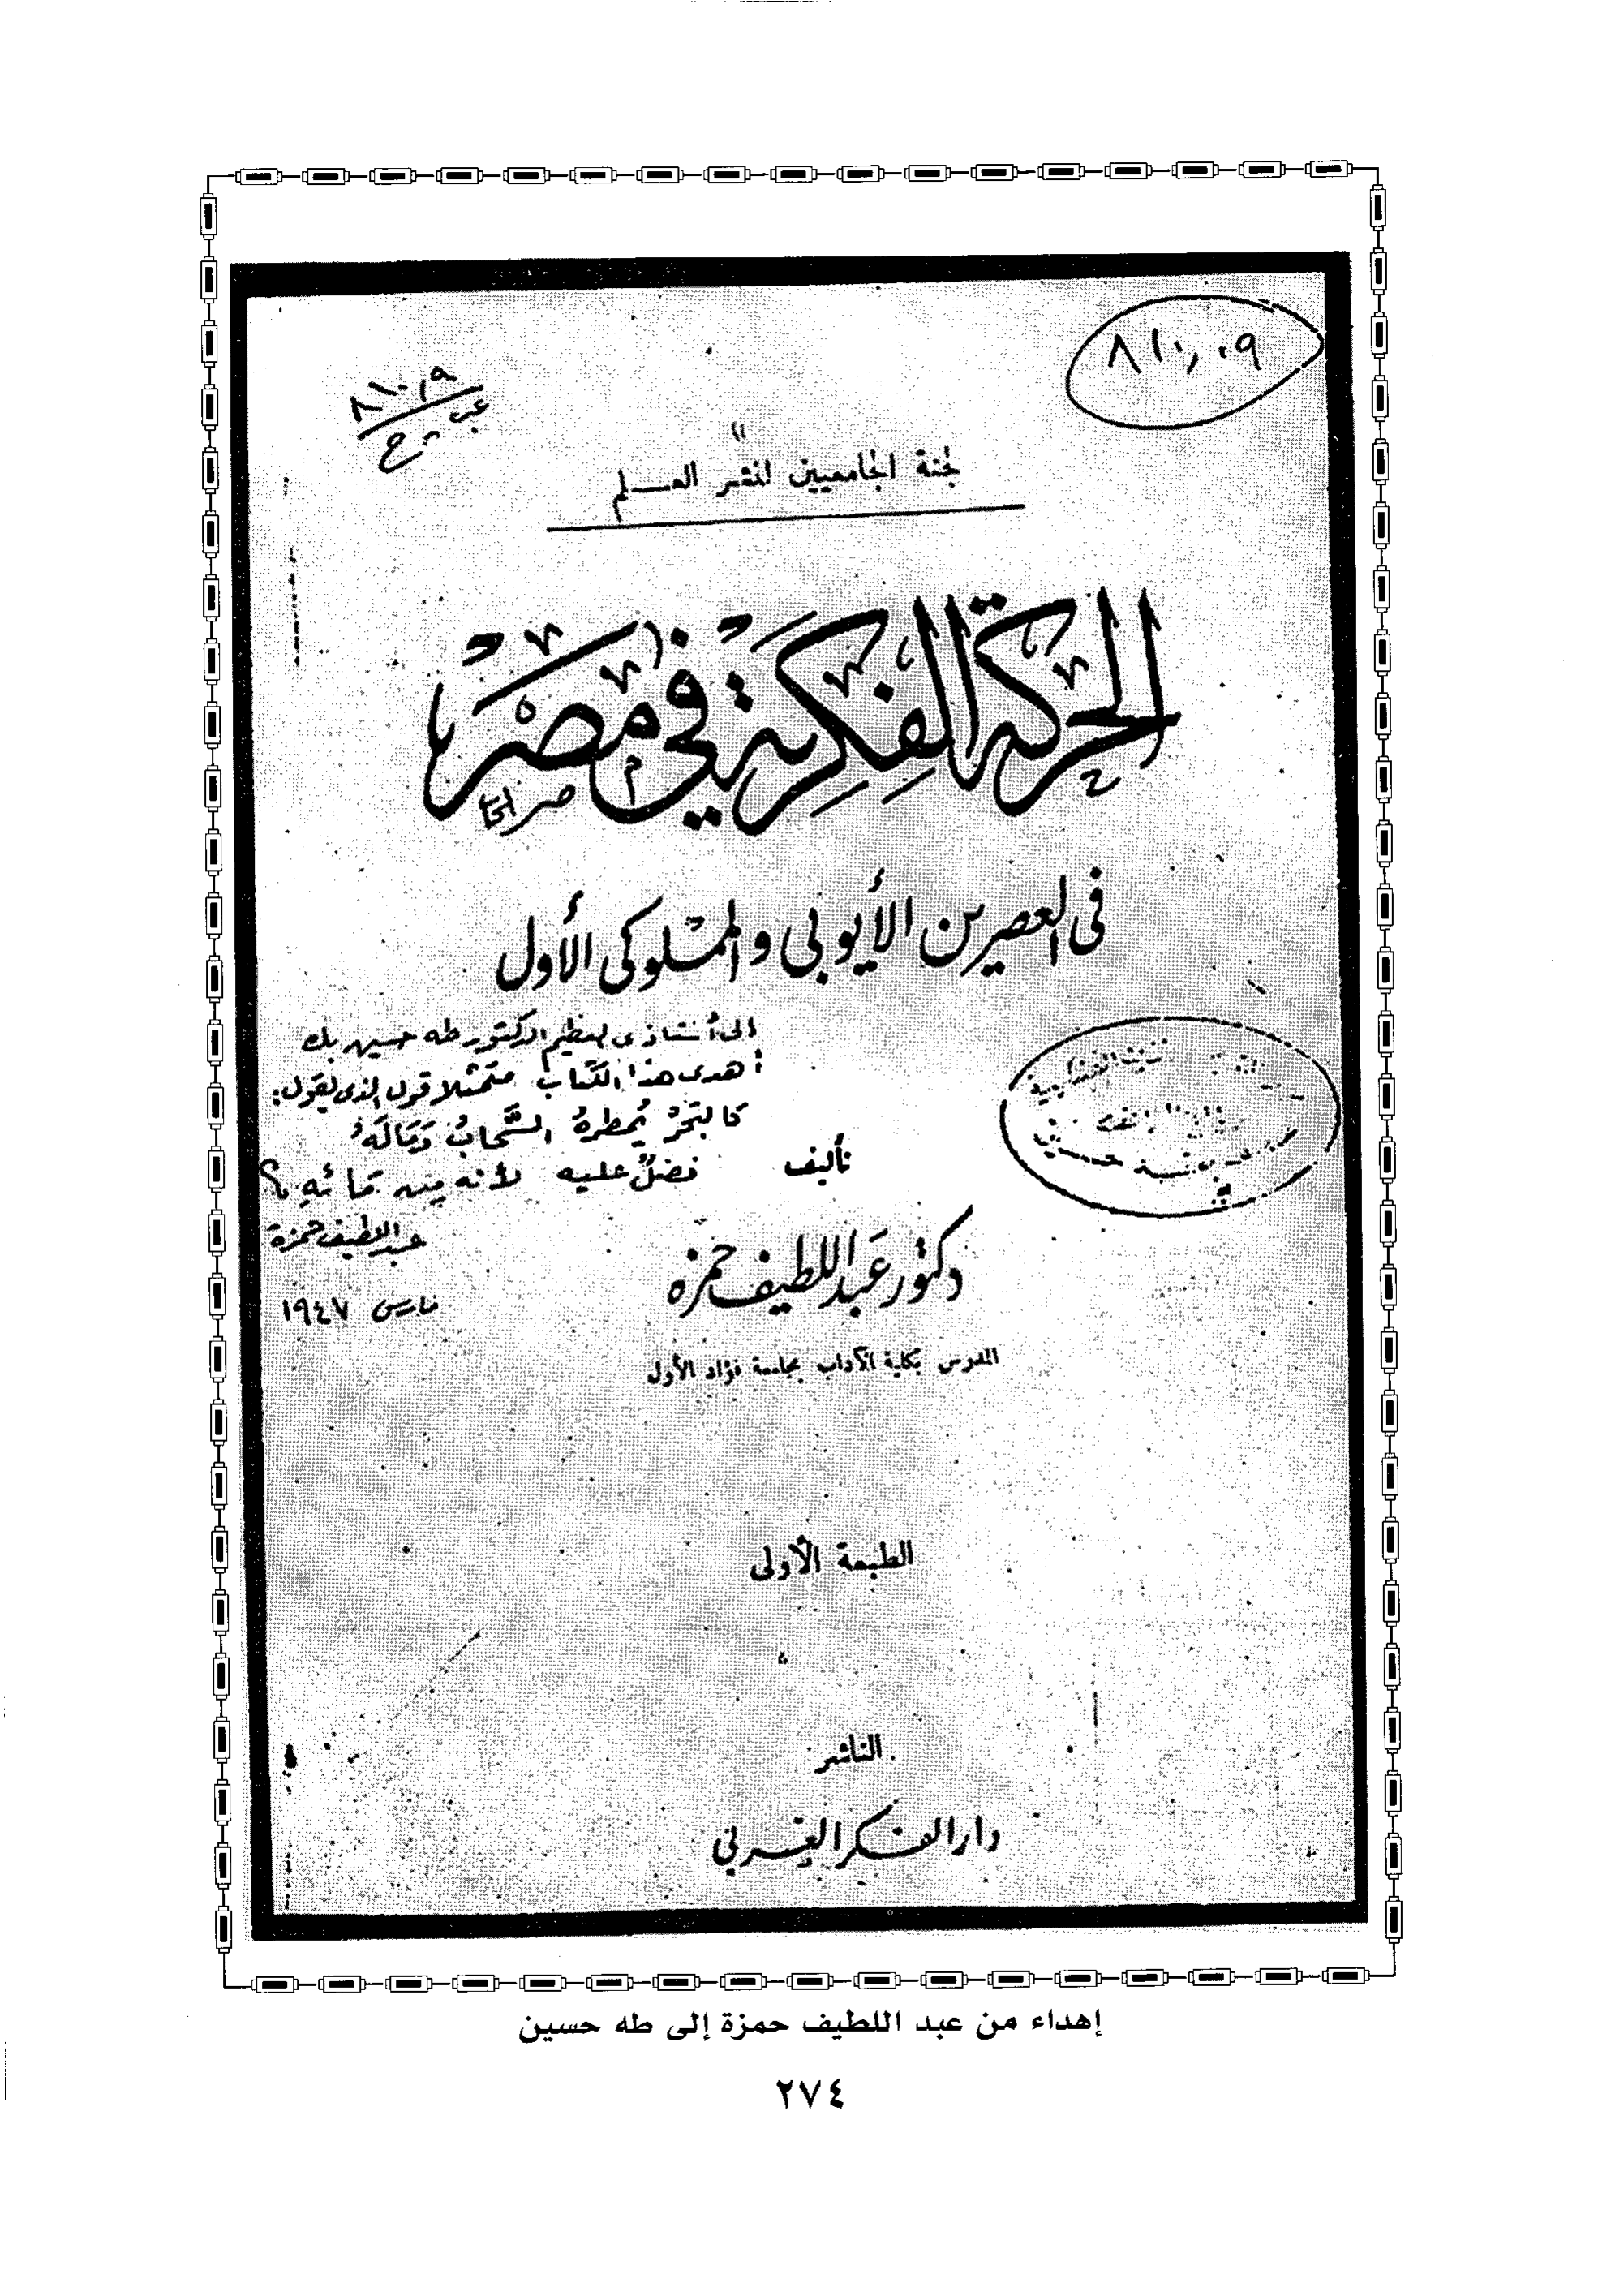 ٨١٠,٠٩
٨١٠,٩
عب ح
لجنة الجامعيين لنشر العلم
الحركة الفكرية في مصر
في العصرين الأيوبي والمملوكى الأول
إلى أستاذى العظيم الدكتور طه حسين بك
أهدى هذا الكتاب متمثلا قول الذى يقول:
كالبَحْر يُمطرهُ السَّحابُ وَمَا لَهُ
فضلٌ عليه لأنه مِنه مَائِهِ
عبد اللطيف حمزة
مارس ١٩٤٧
تأليف
دكتور عبد اللطيف حمزه
المدرس بكلية الآداب بجامعة فؤاد الأول
الطبعة الأولى
الناشر
دار الفكر العربي
إهداء من عبد اللطيف حمزة إلى طه حسين
٢٧٤